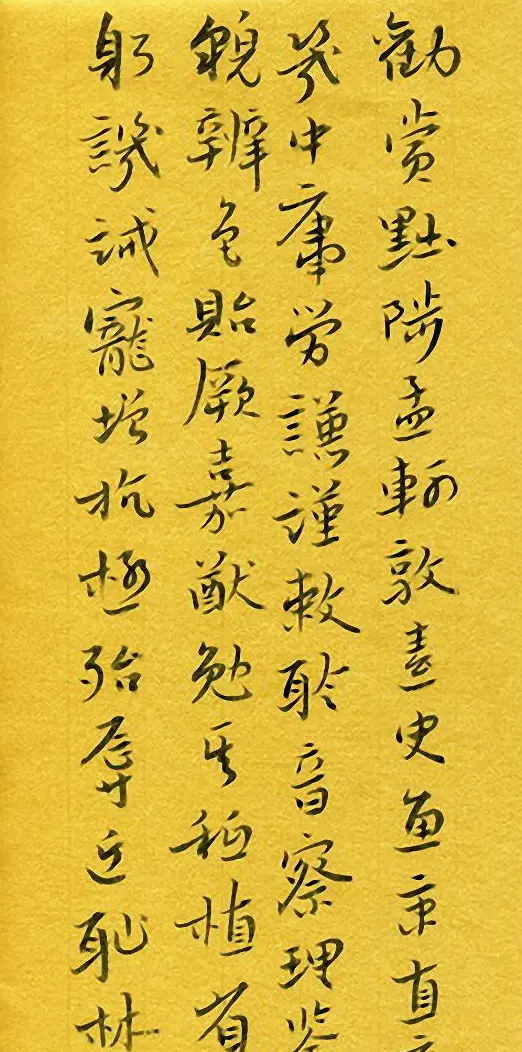 勸賞黜陟孟軻敦素史魚秉直
幾中庸勞謙謹敕聆音察理
貌辨色貽厥嘉猷勉其祗植省
躬譏誡寵增抗極殆辱近恥林